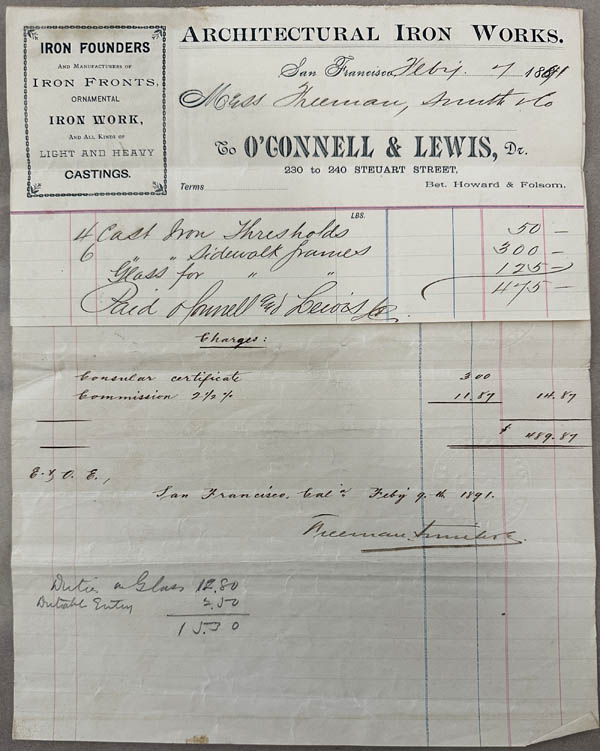 IRON FOUNDERS
AND MANUFACTURERS OF
IRON FRONTS,
ORNAMENTAL
IRON WORK,
AND ALL KINDS OF
LIGHT AND HEAVY
CASTINGS.
ARCHITECTURAL IRON WORKS.
San Francisco, Feb'y. 7 1891
Mess Freeman, Smith & Co
To O'CONNELL & LEWIS, Dr.
230 to 240 STEUART STREET.
Terms Bet. Howard & Folsom.
LBS.
4 Cast Iron Thresholds 50 —
6 " " Sidewalk frames 300 —
Glass for " " 125 —
475 —
Paid O'Connell and Lewis
Charges:
Consular certificate 3 00
Commission 2 1/2 % 11.87 14.87
$ 489.87
E. & O. E.,
San Francisco, Cal. Feb'y 9th 1891.
Freeman Smith & Co.
Duties on Glass 12.80
Dutiable Entry 2.50
15.30